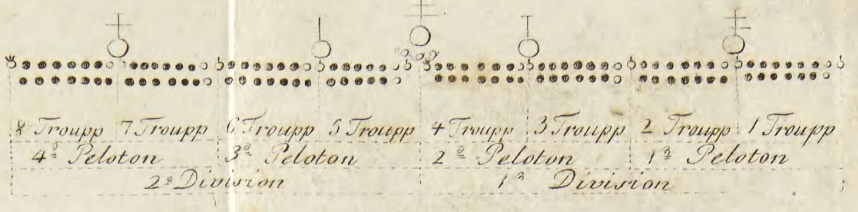 8 Troupp 7 Troupp 6 Troupp 5 Troupp 4 Troupp 3 Troupp 2 Troupp 1 Troupp
4º Peloton 3º Peloton 2º Peloton 1ª Peloton
2ª Division 1ª Division